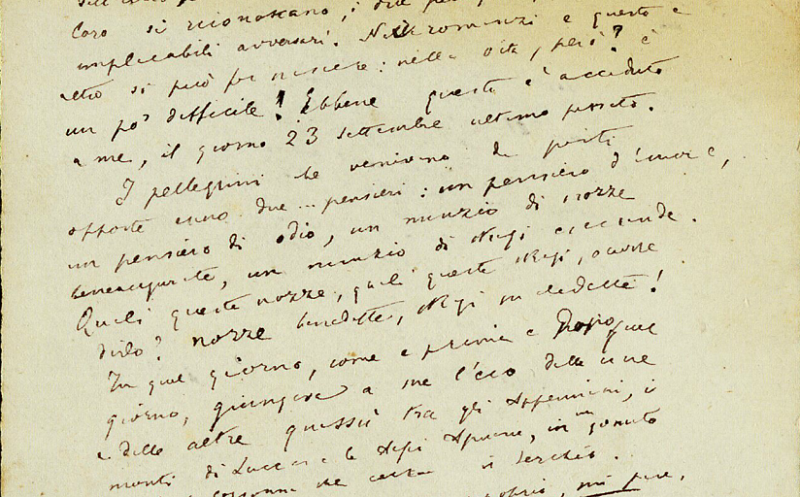 loro si riconoscano, i due
implacabili avversari. Nei romanzi e questo e
altro si può far nascere: nella vita, però? è
un po' difficile! Ebbene questo è accaduto
a me, il giorno 23 settembre ultimo passato.
I pellegrini che venivano da parti
opposte erano due... pensieri: un pensiero d'amore,
un pensiero di odio, un nunzio di nozze
beneaugurate, un nunzio di stragi esecrande.
Quali queste nozze, quali queste stragi, occorre
dirlo? nozze benedette, stragi maledette!
In quel giorno, come e prima e dopo quel
giorno, giungeva a me l'eco delle une
e delle altre quassù tra gli Appennini, i
monti di Lucca e le Alpi Apuane, in un
che il Serchio.
mi pare,